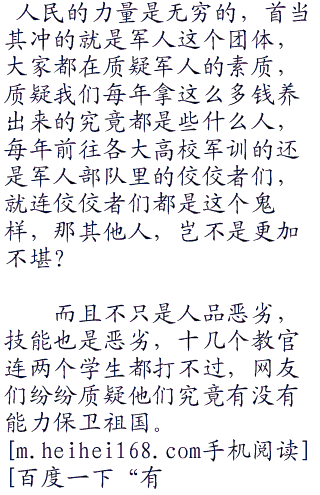 人民的力量是无穷的，首当
其冲的就是军人这个团体，
大家都在质疑军人的素质，
质疑我们每年拿这么多钱养
出来的究竟都是些什么人，
每年前往各大高校军训的还
是军人部队里的佼佼者们，
就连佼佼者们都是这个鬼
样，那其他人，岂不是更加
不堪？
而且不只是人品恶劣，
技能也是恶劣，十几个教官
连两个学生都打不过，网友
们纷纷质疑他们究竟有没有
能力保卫祖国。
[m.heihei168.com手机阅读]
[百度一下“有